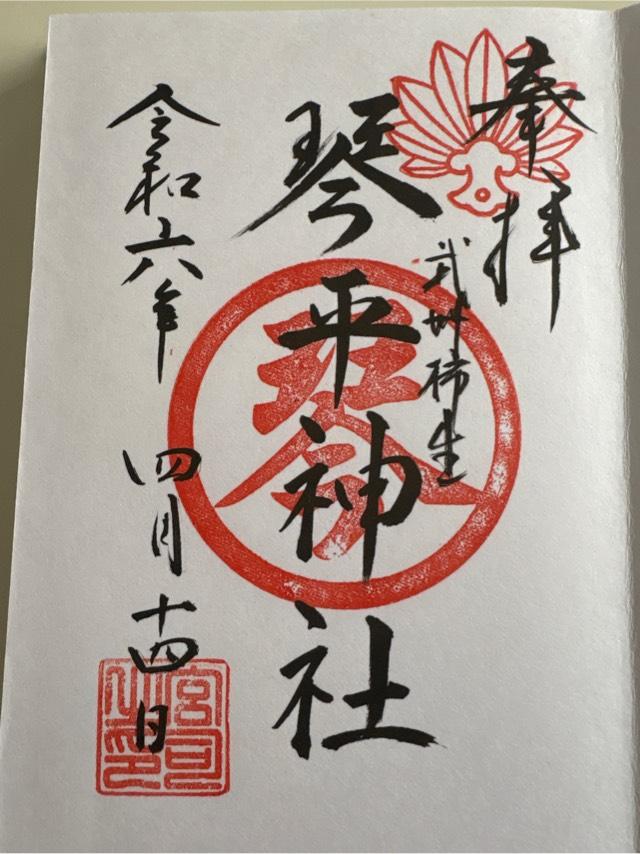 奉拝
武州柿生
琴平神社
琴
令和六年四月十四日
宮司之印